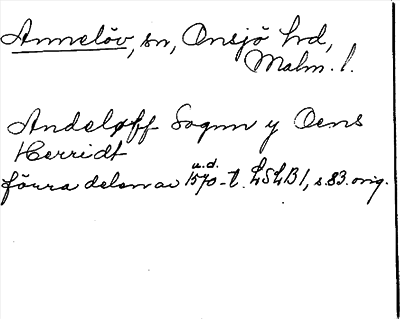 Annelöv, sn, Onsjö hrd,
Malm. l.
Andeløff Sognn y Oens
Herridt
förra delen av u.d. 1570-t. LSLB 1, s. 83. orig.